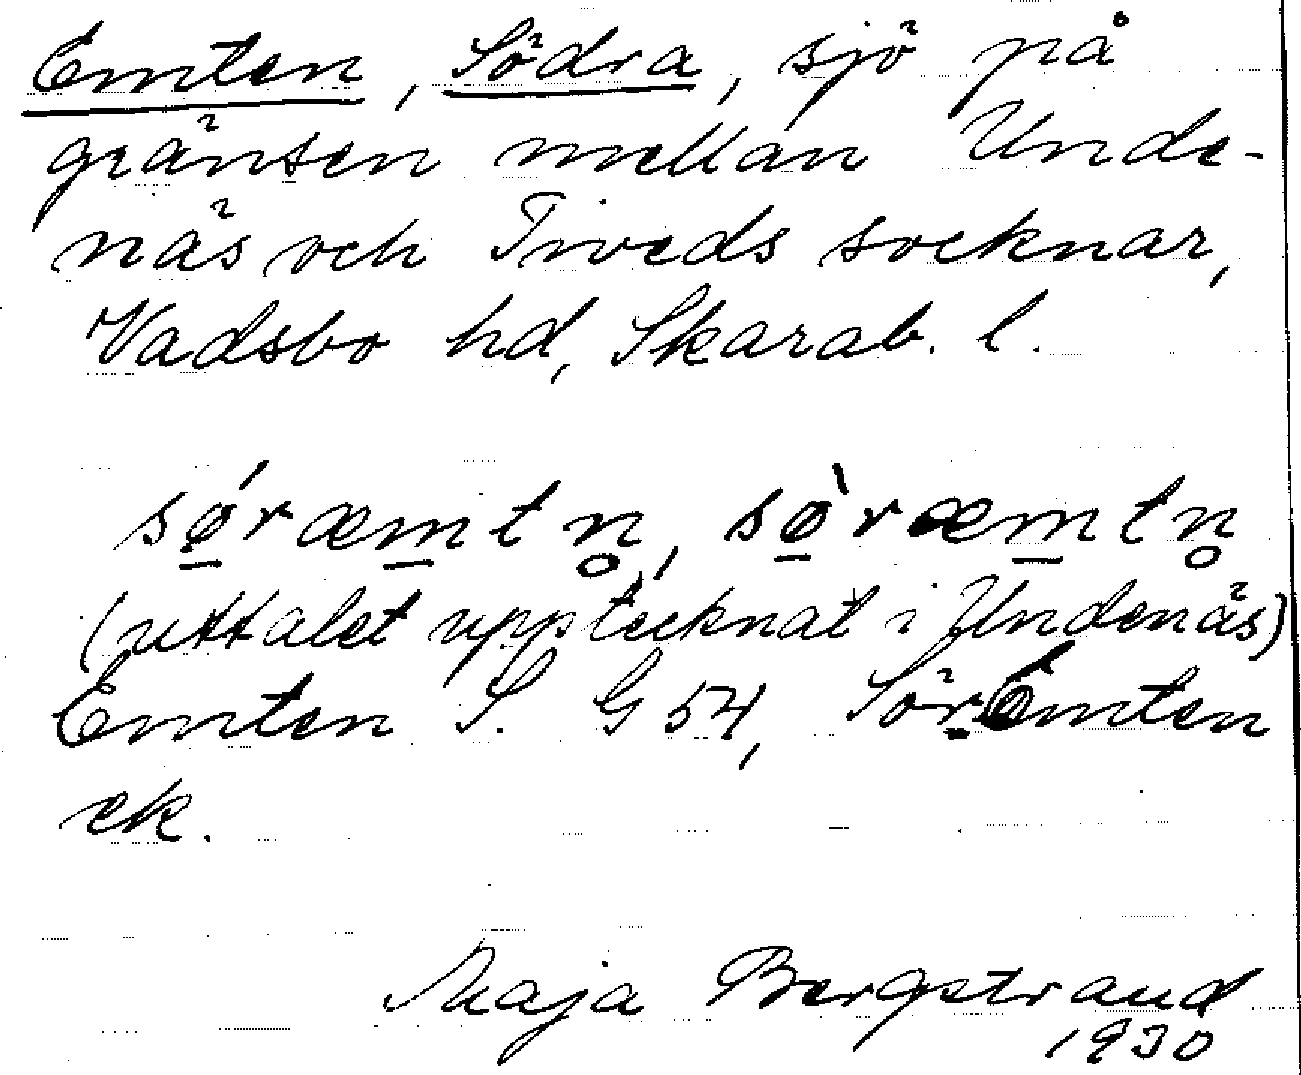 Emten, Södra, sjö på
gränsen mellan Unde-
näs och Tiveds socknar,
Vadsbo hd, Skarab. l.
sǿ̱ræm̱tn̥, sø̱̀ræm̱tn̥
(uttalet upptecknat i Undenäs)
Emten S. G 54, Sör Emten
ek.
Maja Bergstrand
1930